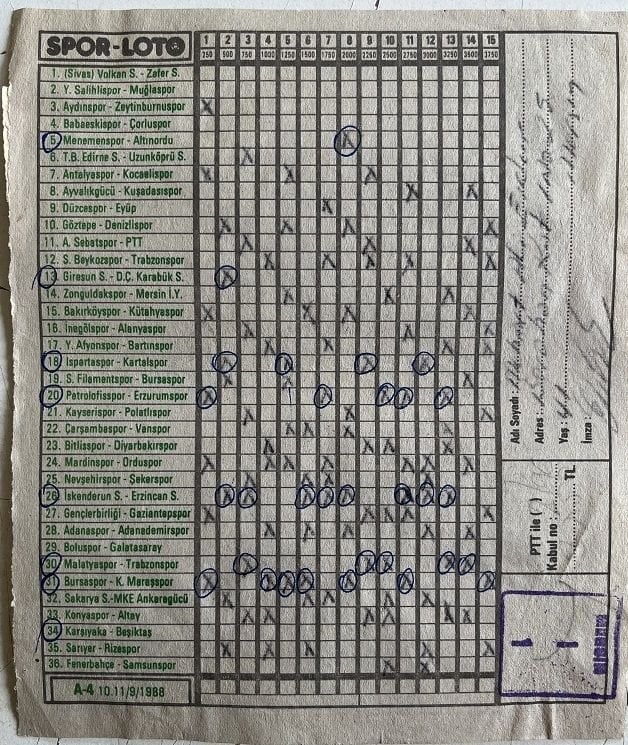 SPOR-LOTO 1 2 3 4 5 6 7 8 9 10 11 12 13 14 15
250 500 750 1000 1250 1500 1750 2000 2250 2500 2750 3000 3250 3500 3750
1. (Sivas) Volkan S. - Zafer S.
2. Y. Salihlispor - Muğlaspor
3. Aydınspor - Zeytinburnuspor
4. Babaeskispor - Çorluspor
5. Menemenspor - Altınordu
6. T.B. Edirne S. - Uzunköprü S.
7. Antalyaspor - Kocaelispor
8. Ayvalıkgücü - Kuşadasıspor
9. Düzcespor - Eyüp
10. Göztepe - Denizlispor
11. A. Sebatspor - PTT
12. S. Beykozspor - Trabzonspor
13. Giresun S. - D.Ç. Karabük S.
14. Zonguldakspor - Mersin İ.Y.
15. Bakırköyspor - Kütahyaspor
16. İnegölspor - Alanyaspor
17. Y. Afyonspor - Bartınspor
18. Ispartaspor - Kartalspor
19. S. Filamentspor - Bursaspor
20. Petrolofisspor - Erzurumspor
21. Kayserispor - Polatlıspor
22. Çarşambaspor - Vanspor
23. Bitlisspor - Diyarbakırspor
24. Mardinspor - Orduspor
25. Nevşehirspor - Şekerspor
26. İskenderun S. - Erzincan S.
27. Gençlerbirliği - Gaziantepspor
28. Adanaspor - Adanademirspor
29. Boluspor - Galatasaray
30. Malatyaspor - Trabzonspor
31. Bursaspor - K. Maraşspor
32. Sakarya S.-MKE Ankaragücü
33. Konyaspor - Altay
34. Karşıyaka - Beşiktaş
35. Sarıyer - Rizespor
36. Fenerbahçe - Samsunspor
A-4 10.11/9/1988
Adı Soyadı :
Adres :
Yaş :
İmza :
PTT ile ( )
Kabul no :
TL